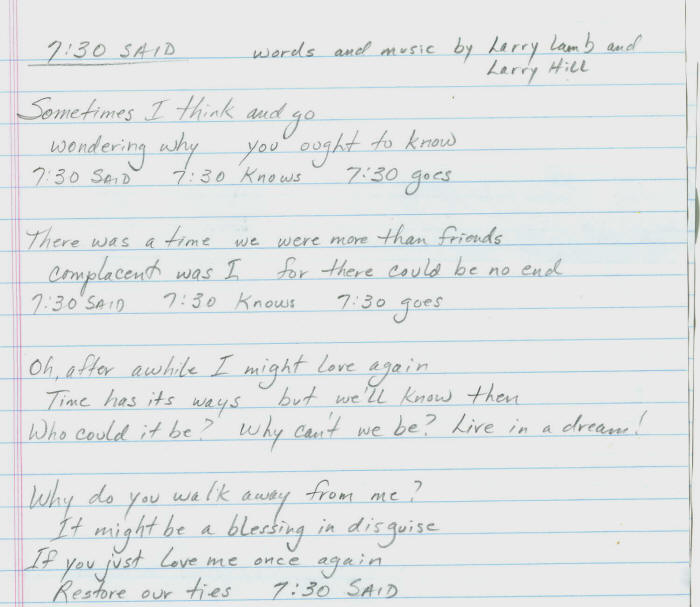 7:30 SAID words and music by Larry Lamb and
Larry Hill
Sometimes I think and go
wondering why you ought to know
7:30 SAID 7:30 Knows 7:30 goes
There was a time we were more than friends
complacent was I for there could be no end
7:30 SAID 7:30 Knows 7:30 goes
Oh, after awhile I might love again
Time has its ways but we'll know then
Who could it be? Why can't we be? Live in a dream!
Why do you walk away from me?
It might be a blessing in disguise
If you just love me once again
Restore our ties 7:30 SAID